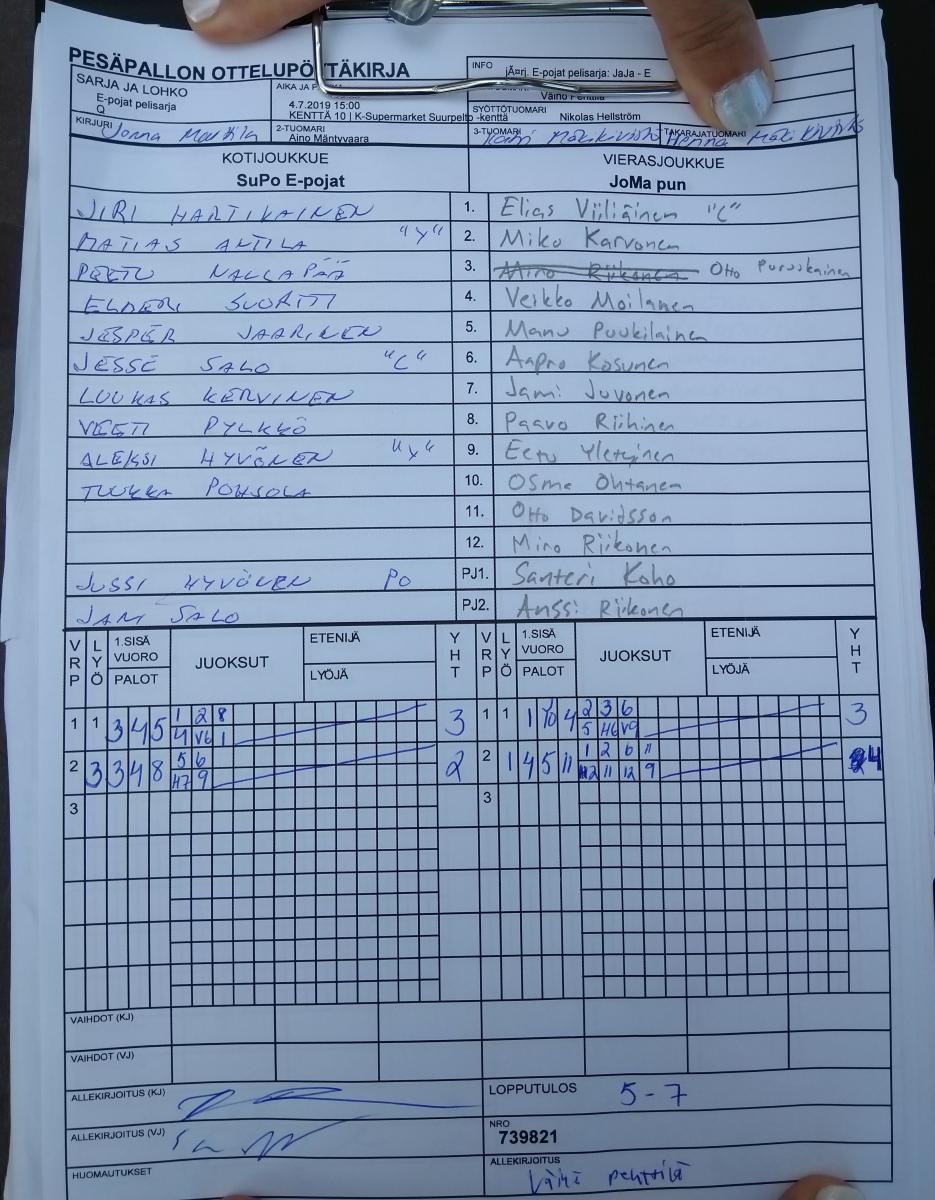 PESÄPALLON OTTELUPÖYTÄKIRJA
INFO järj. E-pojat pelisarja: JaJa - E
SARJA JA LOHKO
E-pojat pelisarja
Q
AIKA JA
4.7.2019 15:00
KENTTÄ 10 | K-Supermarket Suurpelto -kenttä
Väinö Penttilä
SYÖTTÖTUOMARI
Nikolas Hellström
KIRJURI
2-TUOMARI
Aino Mäntyvaara
3-TUOMARI
TAKARAJATUOMARI
KOTIJOUKKUE VIERASJOUKKUE
SuPo E-pojat JoMa pun
JIRI HARTIKAINEN 1. Elias Viiliäinen "C"
MATIAS ANTILA "Y" 2. Miko Karvonen
PEETU NALLAPÄÄ 3. Miro Riikonen Otto Puruskainen
ELMERI 4. Veikko Moilanen
JESPER JAARINEN 5. Manu Puukilainen
JESSE SALO "C" 6. Aapro Kosunen
LUUKAS KERVINEN 7. Jami Juvonen
VEETI PYLKKÖ 8. Paavo Riihinen
ALEKSI HYVÖNEN "Y" 9. Eetu Yletyinen
TUUKKA POHJOLA 10. Osma Ohtanen
11. Otto Davidsson
12. Miro Riikonen
JUSSI HYVÖNEN PO PJ1. Santeri Koho
JANI SALO PJ2. Anssi Riikonen
VRP LYÖ 1.SISÄ VUORO PALOT JUOKSUT ETENIJÄ LYÖJÄ YHT VRP LYÖ 1.SISÄ VUORO PALOT JUOKSUT ETENIJÄ LYÖJÄ YHT
1 1 3 4 5 1 2 8 3 1 1 1 10 4 2 3 6 3
4 V6 1 5 H6 V9
2 3 3 4 8 5 6 2 2 1 4 5 11 1 2 6 11 4
H7 9 11 12 9
3 3
VAIHDOT (KJ)
VAIHDOT (VJ)
ALLEKIRJOITUS (KJ)
LOPPUTULOS 5-7
ALLEKIRJOITUS (VJ)
NRO
739821
HUOMAUTUKSET
ALLEKIRJOITUS
Penttilä